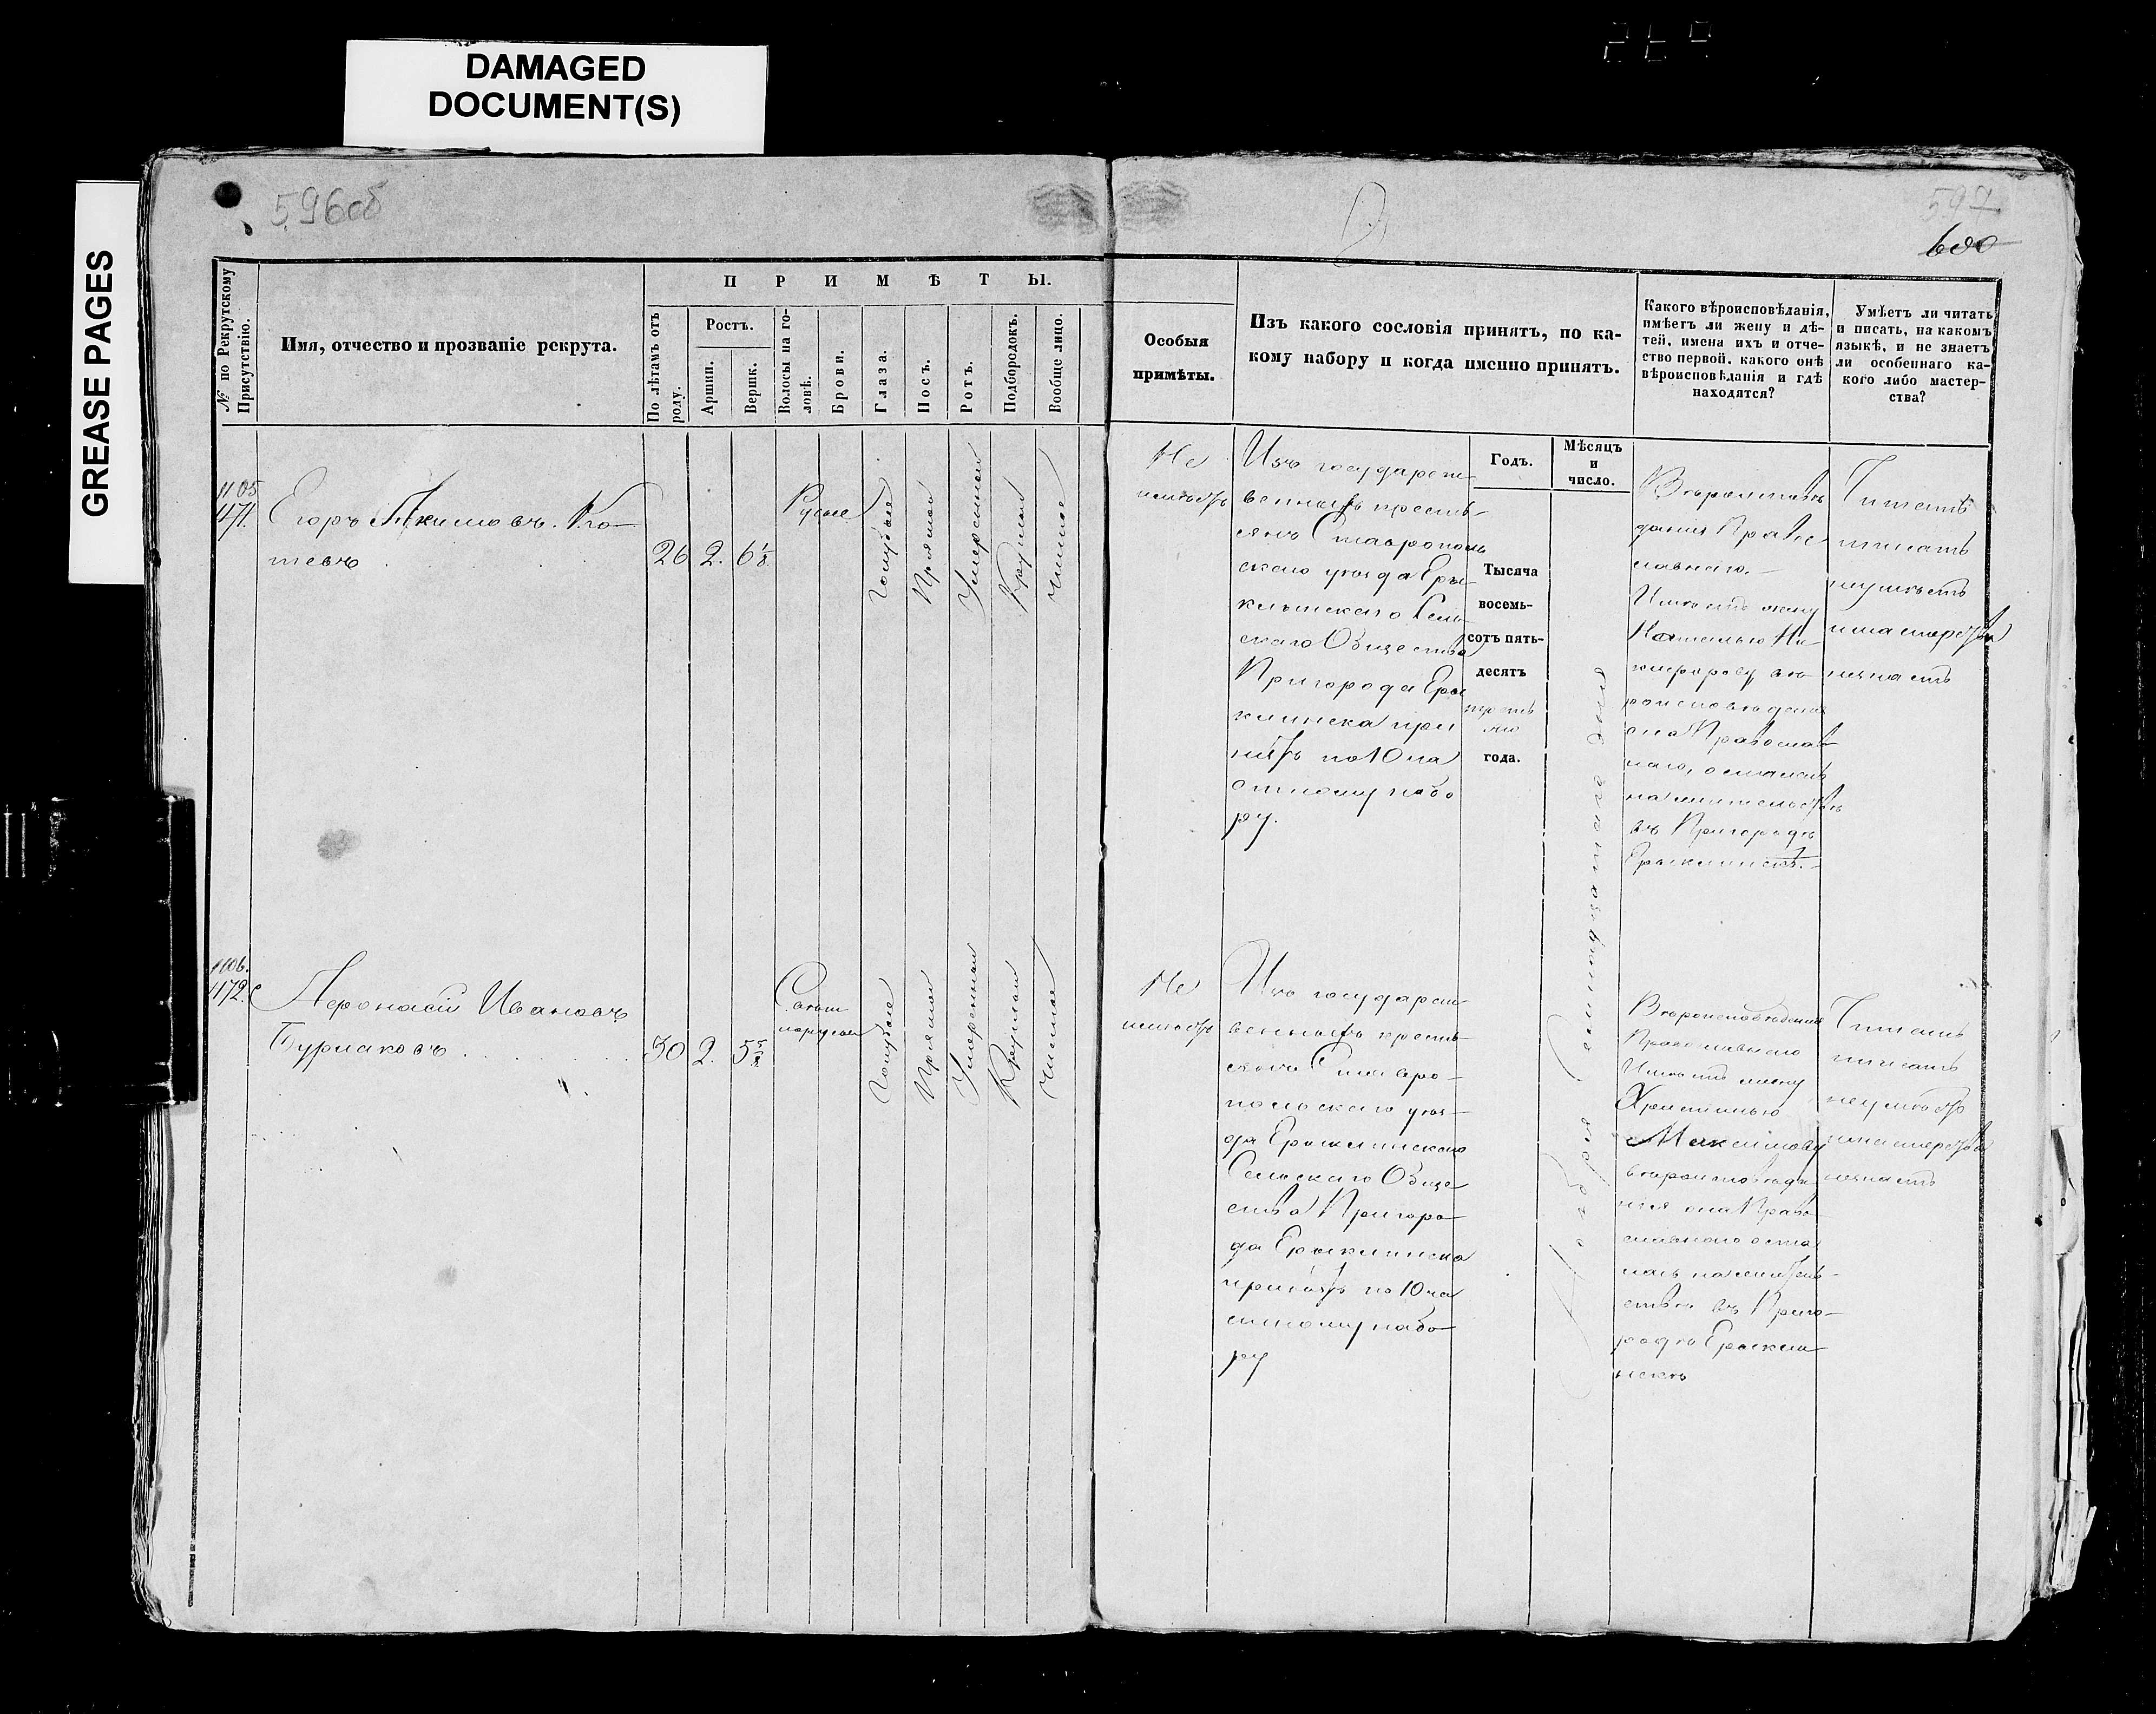 DAMAGED
DOCUMENT(S)
GREASE PAGES
596об
597
600
№ по Рекрутскому
Присутствію.
Имя, отчество и прозваніе рекрута.
ПРИМѢТЫ.
По лѣтамъ отъ
роду.
Ростъ.
Аршин.
Вершк.
Волосы на го-
ловѣ.
Брови.
Глаза.
Носъ.
Ротъ.
Подбородокъ.
Вообще лицо.
Особыя
примѣты.
Изъ какого сословія принятъ, по ка-
кому набору и когда именно принятъ.
Какого вѣроисповѣданія,
имѣетъ ли жену и дѣ-
тей, имена ихъ и отче-
ство первой, какого онѣ
вѣроисповѣданія и гдѣ
находятся?
Умѣетъ ли читать
и писать, на какомъ
языкѣ, и не знаетъ
ли особеннаго ка-
кого либо мастер-
ства?
Годъ.
Мѣсяцъ
и
число.
1105
471.
Егоръ Акимовъ
26 2. 6 1/8
Русые
Голубые
Прямой
Умеренной
Круглой
Чистое
Не
имѣетъ
Изъ государст-
венныхъ кресть-
янъ Ставрополь
скаго уѣзда Еры-
клинскаго Сель-
скаго Общества
Пригорода Еры
клинска при
нятъ по 10 ча
стному набо
ру.
Тысяча
восемь-
сотъ пять-
десятъ
третья
го
года.
Вѣроисповѣ
данія Право
славнаго.
Имѣетъ жену
Ни-
кифорову вѣ
роисповѣданія
она Православ
наго, осталась
на жительствѣ
въ Пригородѣ
Ерыклинскѣ.
Читать
писать
неумѣетъ
и мастерства
незнаетъ
1106.
1172.
Афонасій Ивановъ
Бурлаковъ
30 2. 5 5/8
Светло
русые
Голубые
Прямой
Умеренной
Круглой
Чистое
Не
имѣетъ
Изъ государст
венныхъ кресть-
янъ Ставро-
польскаго уѣз-
да Ерыклинскаго
Сельскаго Обще
ства Пригоро-
да Ерыклинска
принятъ по 10 ча
стному набо-
ру
Вѣроисповѣданія
Православнаго
Имѣетъ жену
Христинью
Максимову
вѣроисповѣда
нія она Право
славнаго оста
лась на житель-
ствѣ въ Приго-
родѣ Ерыклин
скѣ
Читать
писать
неумѣетъ
и мастерства
незнаетъ